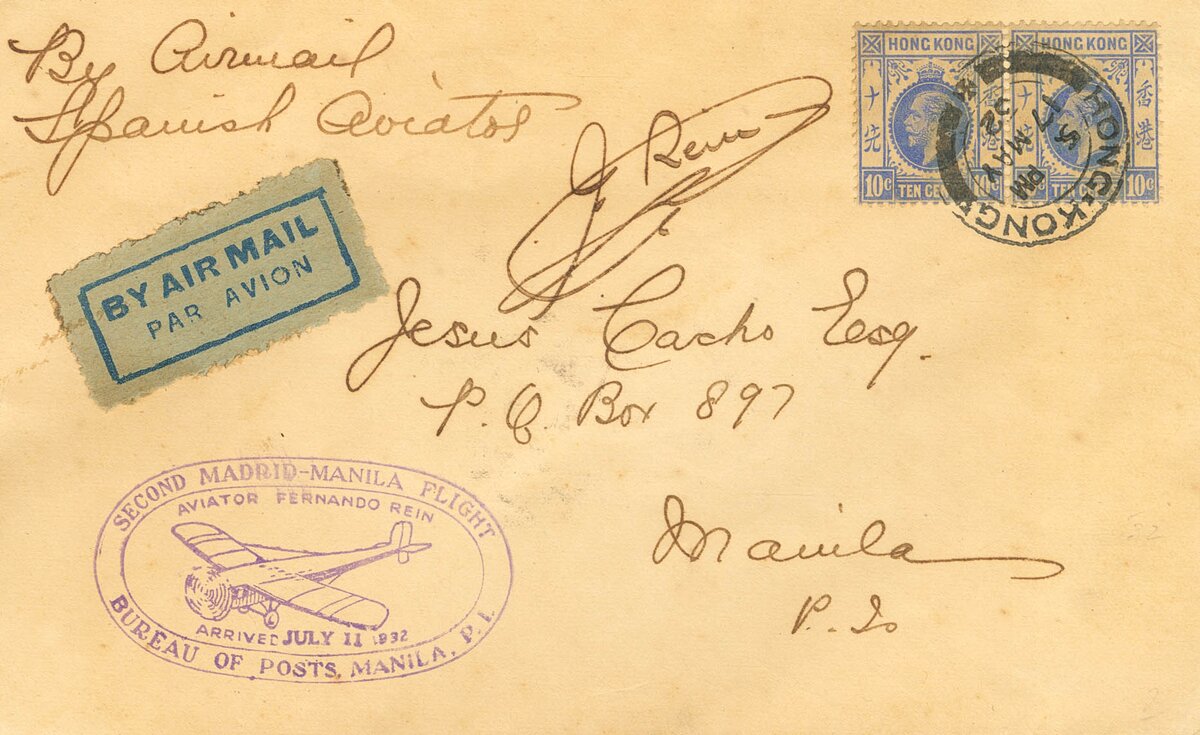 By Airmail
Spanish Aviator
F. Rein
HONG KONG
香港
十先
10c TEN CE 10c
HONG KONG
香港
十先
TEN 10c
HONG-KONG
PM
MAY
32
BY AIR MAIL
PAR AVION
Jesus Cacho Esq.
P.O. Box 897
Manila
P. Is
SECOND MADRID-MANILA FLIGHT
AVIATOR FERNANDO REIN
ARRIVED JULY 11 1932
BUREAU OF POSTS, MANILA, P. I.